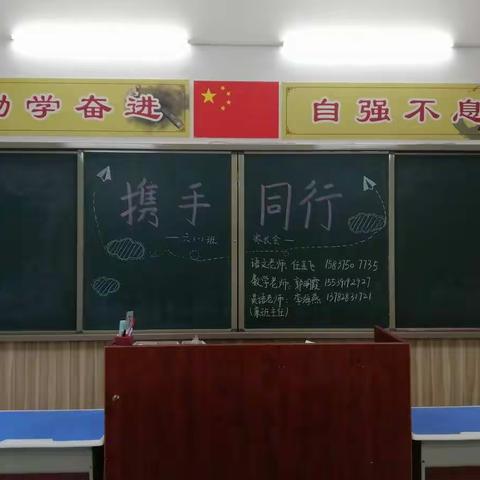 勤学奋进
自强不息
携手同行
一六(1)班
家长会一
语文老师: 任孟飞 15837507735
数学老师: 郭明霞 15539192927
英语老师: 李海燕 13782831721
(兼班主任)